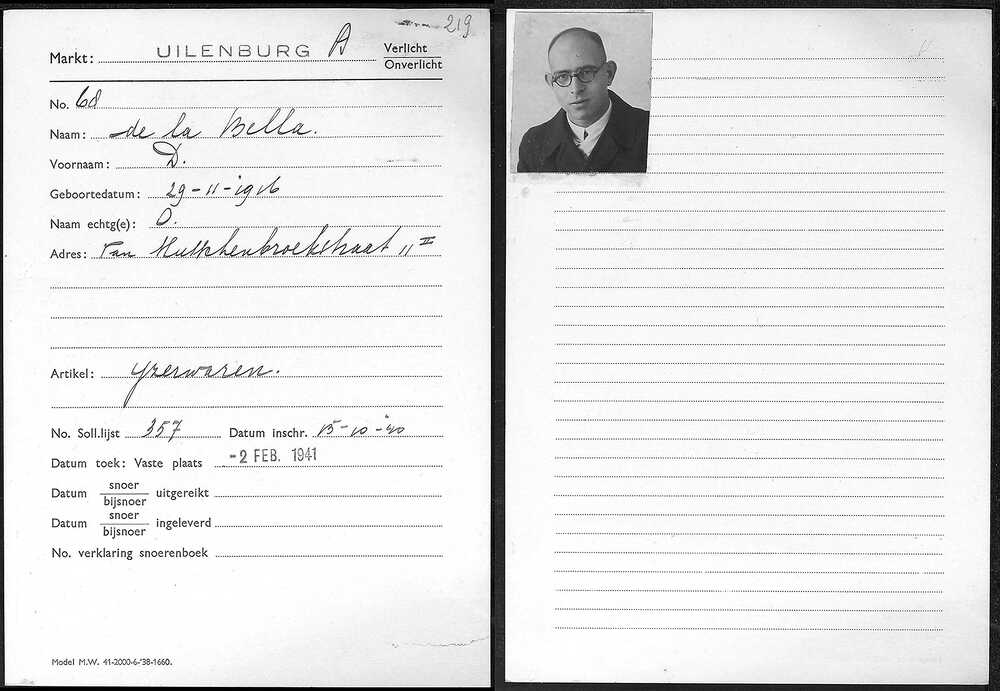 219
Markt: UILENBURG A Verlicht
Onverlicht
No. 68
Naam: de la Bella.
Voornaam: D.
Geboortedatum: 29-11-1916
Naam echtg(e): O.
Adres: Van Musschenbroekstraat 11 II
Artikel: Yzerwaren.
No. Soll.lijst 357 Datum inschr. 15-10-'40
Datum toek: Vaste plaats -2 FEB. 1941
Datum snoer
bijsnoer uitgereikt
Datum snoer
bijsnoer ingeleverd
No. verklaring snoerenboek
Model M.W. 41-2000-6-'38-1660.